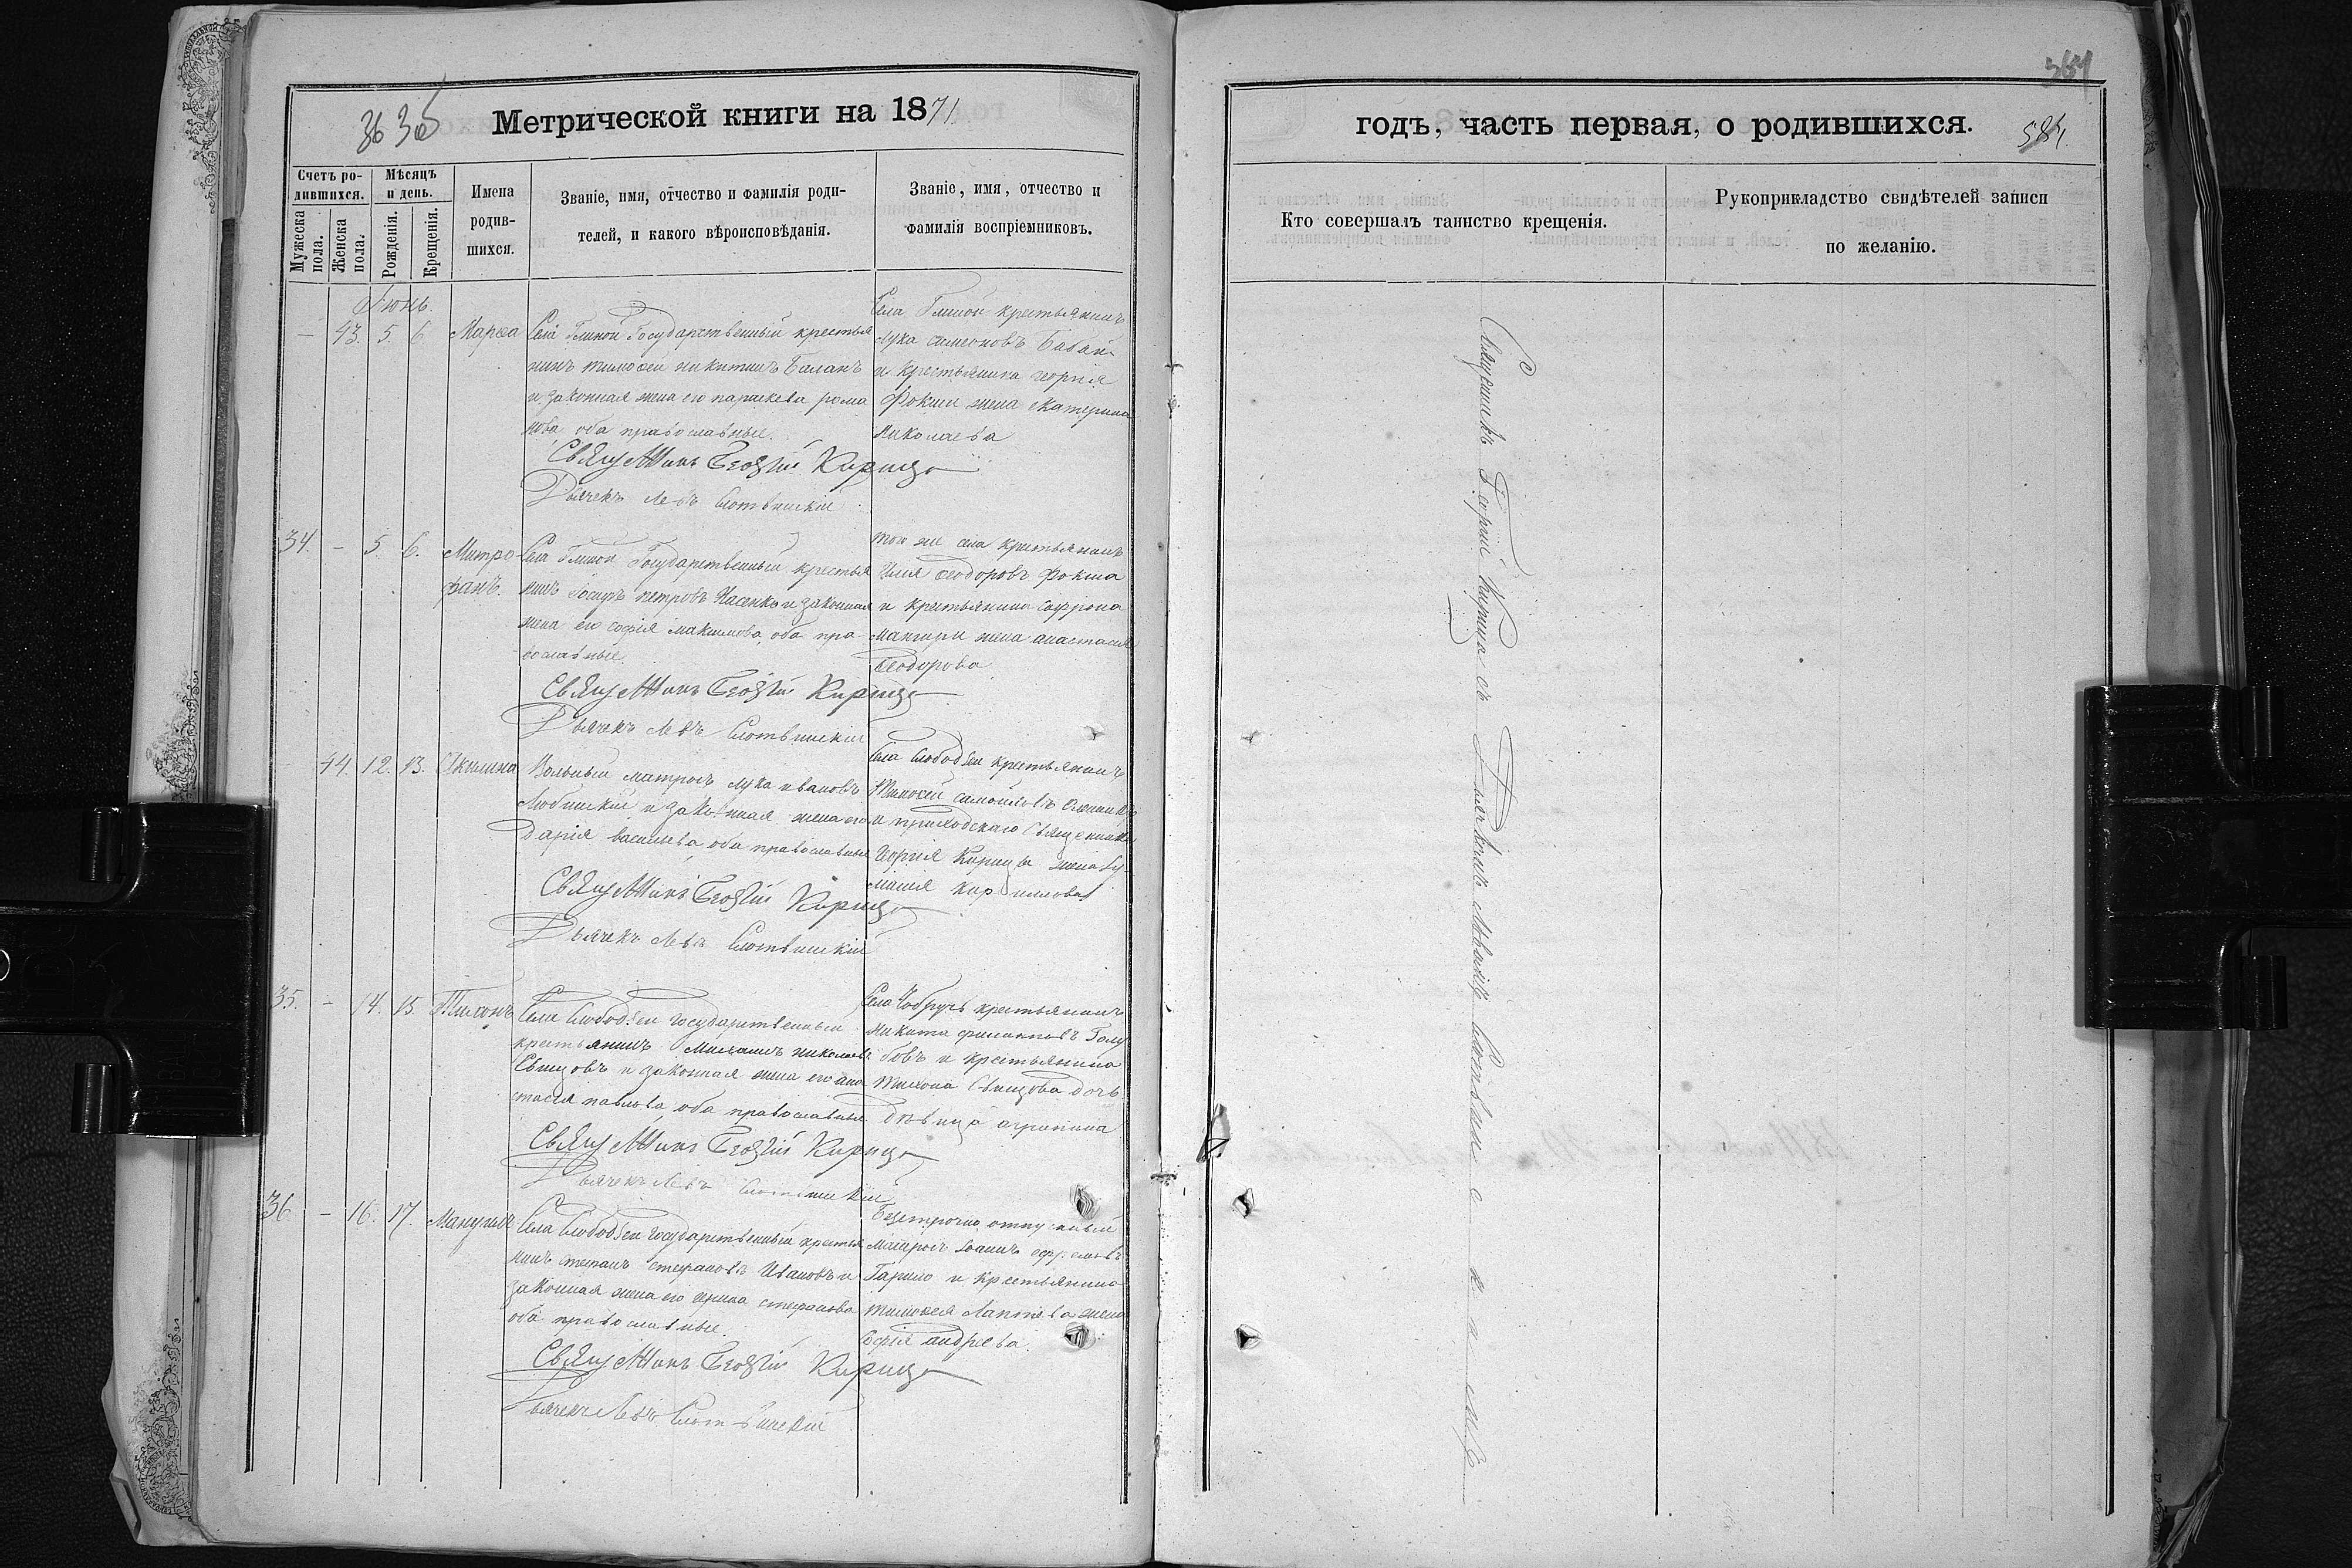 Метрической книги на 1871
Счетъ ро-
дившихся.
Мужеска пола.
Женска пола.
Мѣсяцъ
и день.
Рожденія.
Крещенія.
Имена
родив-
шихся.
Званіе, имя, отчество и фамилія роди-
телей, и какого вѣроисповѣданія.
Званіе, имя, отчество и
фамилія воспріемниковъ.
Іюнь.
— 43. 5. 6 Марѳа
Села Глиной Государственный крестья
нинъ тимоѳей никитинъ Баланъ
и законная жена его параскева рома
нова оба православные.
Села Глиной крестьянинъ
лука симеоновъ
и крестьянина георгія
Фокши жена екатерина
Николаева
Священникъ Георгій Кирица
Дьячекъ Левъ
34. — 5. 6. Митро-
фанъ.
Села Глиной Государственный крестья
нинъ іосифъ петровъ и законная
жена его софія максимова, оба пра
вославные.
той же села крестьянинъ
Илія ѳеодоровъ Фокша
и крестьянина сафрона
жена анастасія
Ѳеодорова
Священникъ Георгій Кирица
Дьячекъ Левъ
44. 12. 13. Акилина
Вольный матросъ лука ивановъ
и законная жена его
Дарія васильева оба православные
Села Слободзеи крестьянинъ
Тимоѳей самойловъ
и приходскаго Священника
Георгія Кирицы жена
Священникъ Георгій Кирица
Дьячекъ Левъ
35. — 14. 15. Тихонъ
Села Слободзеи государственный
крестьянинъ Михаилъ николаевъ
Свищовъ и законная жена его ана
стасія павлова, оба православные
Села Чобручъ крестьянинъ
никита филиповъ Голу
бовъ и крестьянина
тихона Свищова дочь
дѣвица агрипина
Священникъ Георгій Кирица
Дьячекъ Левъ
36 — 16. 17. Мануилъ
Села Слободзеи государственный крестья
нинъ степанъ стефановъ Ивановъ и
законная жена его ирина стефанова
оба православные.
Безсрочно отпускный
матросъ Іоаннъ ефремовъ
и крестьянина
тимоѳея Лаптева жена
Софія андреева.
Священникъ Георгій Кирица
Дьячекъ Левъ
годъ, часть первая, о родившихся.
584.
Кто совершалъ таинство крещенія.
Рукоприкладство свидѣтелей записи
по желанію.
Священникъ Георгій Кирица съ Дьячкомъ